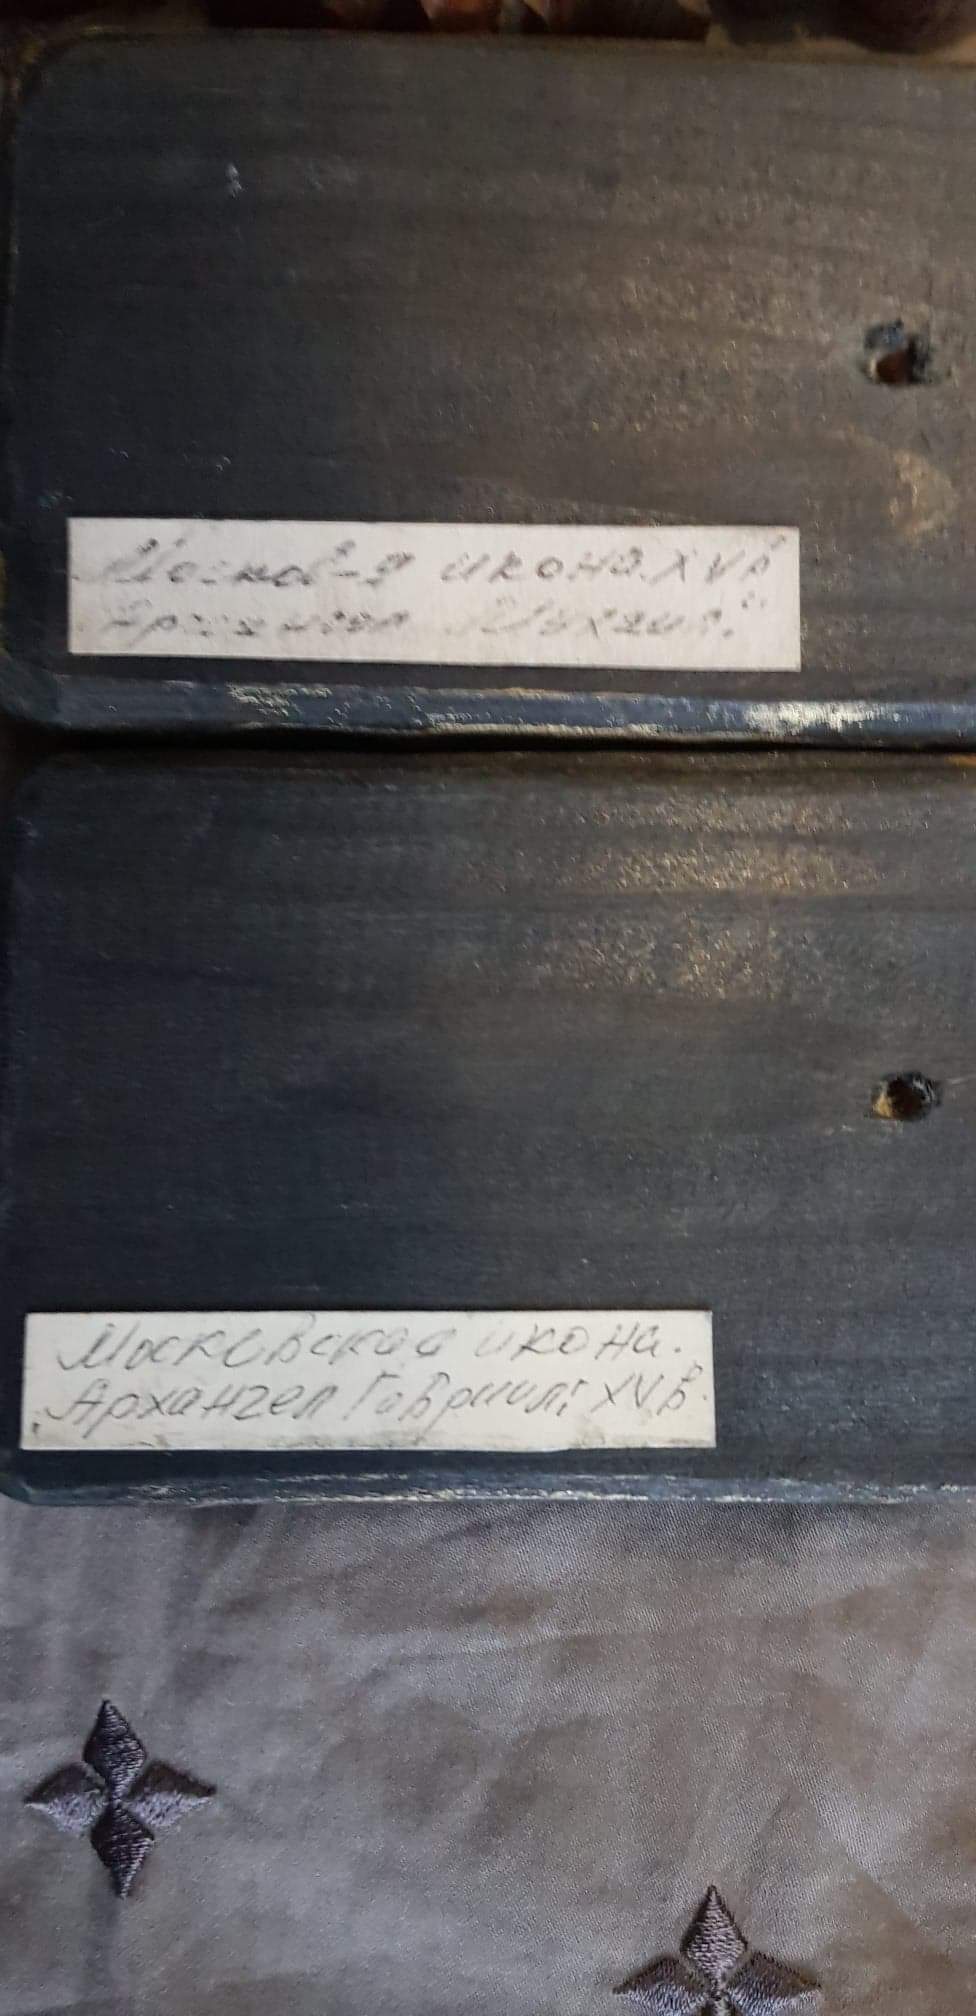 Москов-я икона. XVв
Архангел Михаил.
Московская икона.
Архангел Гавриил; XVв.